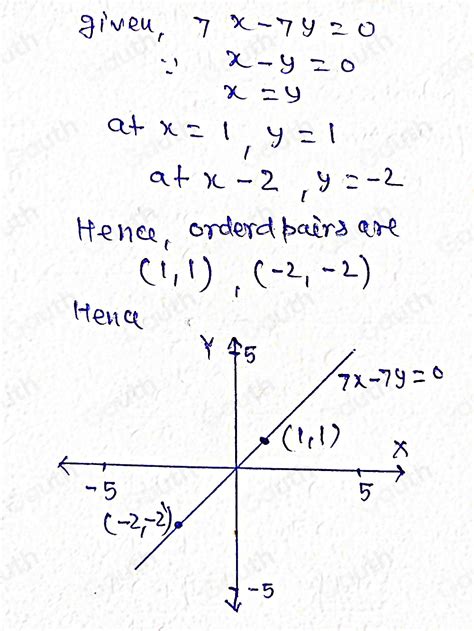 given, 7x-7y=0
∵ x-y=0
x=y
at x=1, y=1
at x-2, y=-2
Hence, orderd pairs are
(1,1), (-2,-2)
Hence
Y 5
7x-7y=0
(1,1)
X
-5
5
(-2,-2)
-5